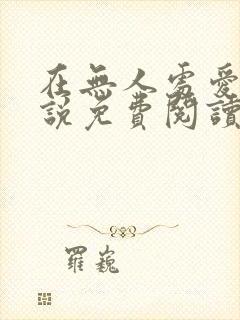 在無人處愛
說免費閱讀
羅巍